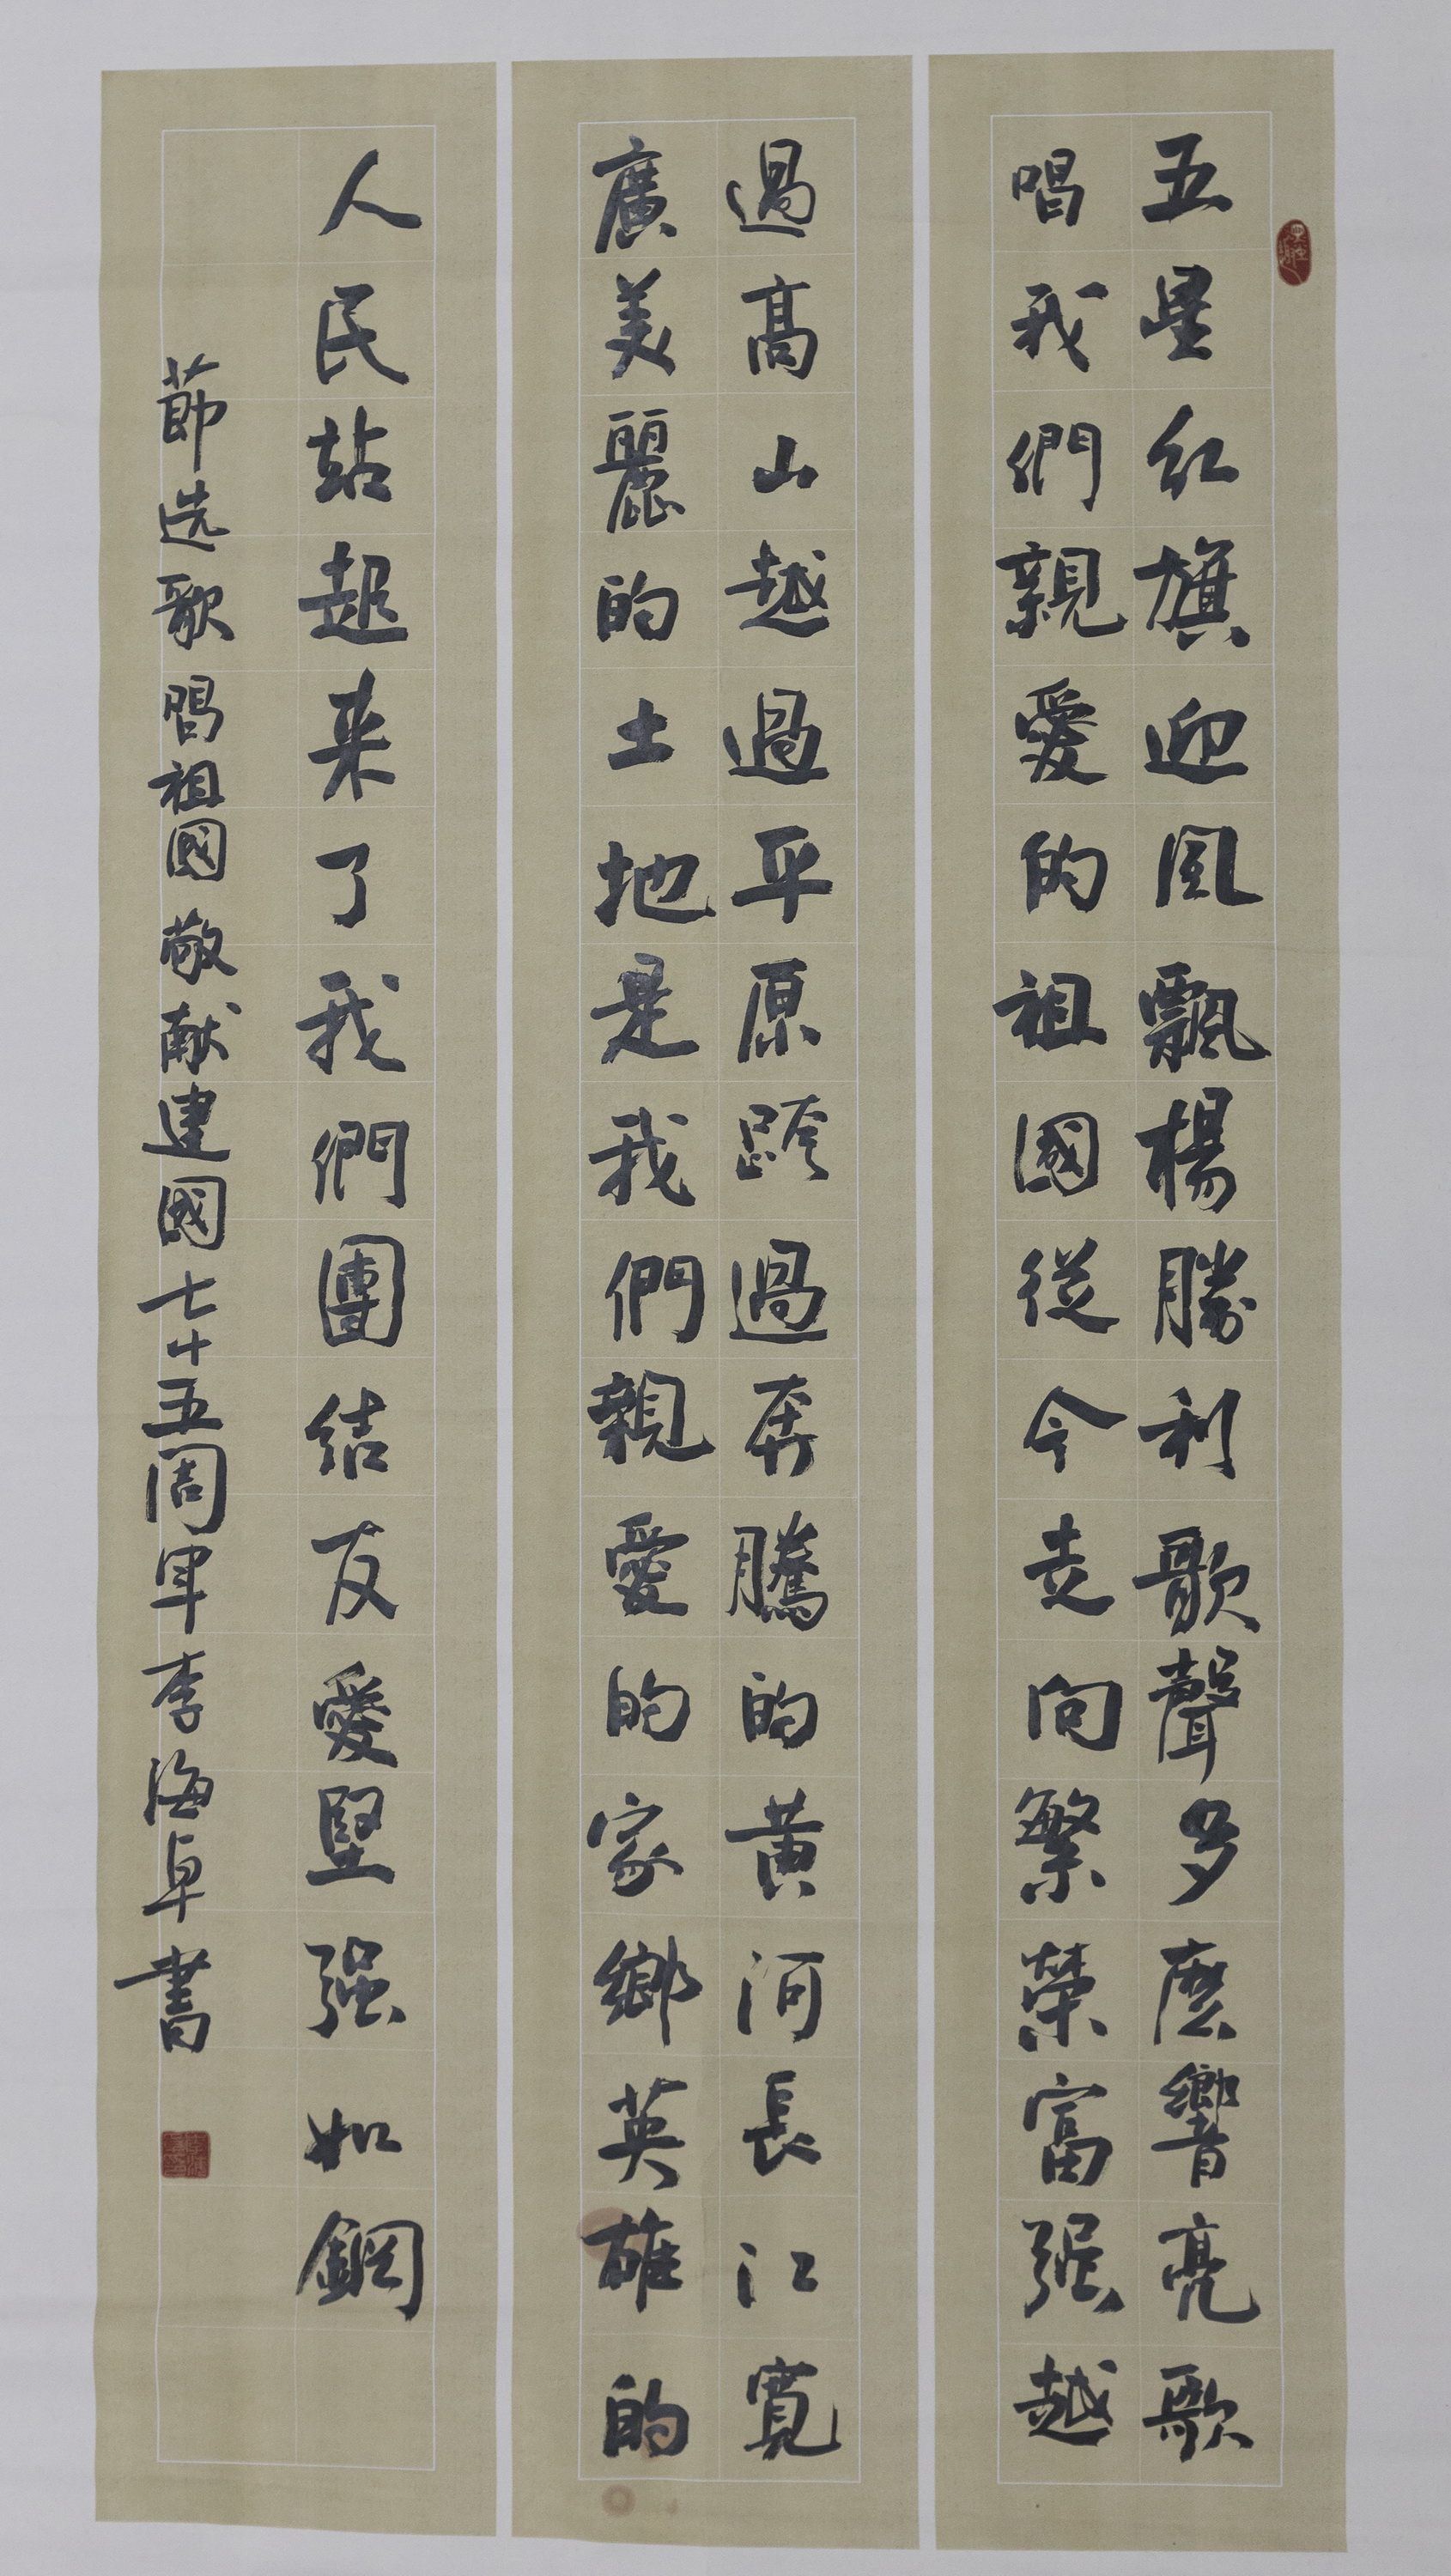 五星紅旗迎風飄楊勝利歌聲多麽響亮歌
唱我們親愛的祖國從今走向繁榮富强越
過高山越過平原跨過奔騰的黄河長江寬
廣美麗的土地是我們親愛的家鄉英雄的
人民站起来了我們團结友愛堅强如鋼
節选歌唱祖國敬献建國七十五周年李海卓書